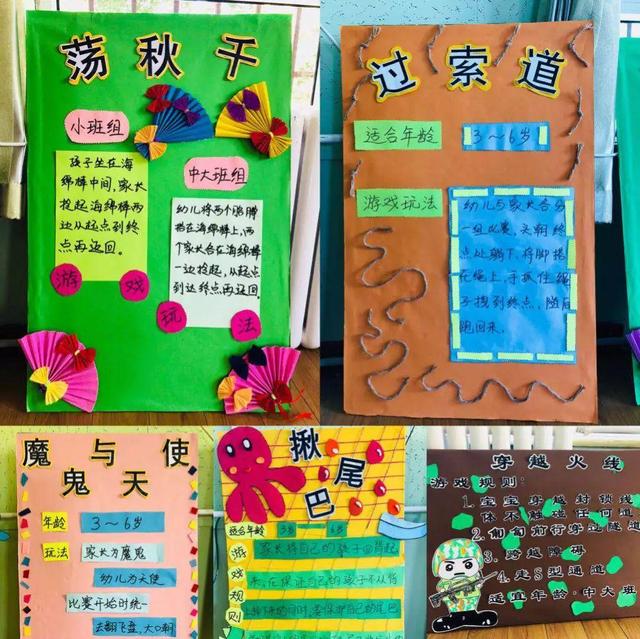 荡秋千
小班组
孩子坐在海
绵棒中间,家长
抬起海绵棒两
边从起点到终
点再返回。
中大班组
幼儿将两个胳膊
搭在海绵棒上,两
个家长合在海绵棒
一边抬起,从起点
到达终点再返回。
游戏玩法
过索道
适合年龄
3~6岁
游戏玩法
幼儿与家长合分
一组比赛,头朝终
点处躺下,将脚搭
在绳上,手抓住绳
子拽到终点,随后
跑回来.
魔与使
鬼天
年龄
3~6岁
玩法
家长为魔鬼
幼儿为天使
比赛开始时统一
去翻飞盘,大口朝
揪尾
巴
适合年龄
3岁 6岁
游戏规则
家长将自己的孩子面背起
来,在保证自己的孩子不从背
穿越火线
游戏规则:
1.宝宝穿越封锁线
体不触碰任何道
2.匍匐前行穿过隧道
3.跨越障碍
4.走S型通道
适宜年龄·中大班